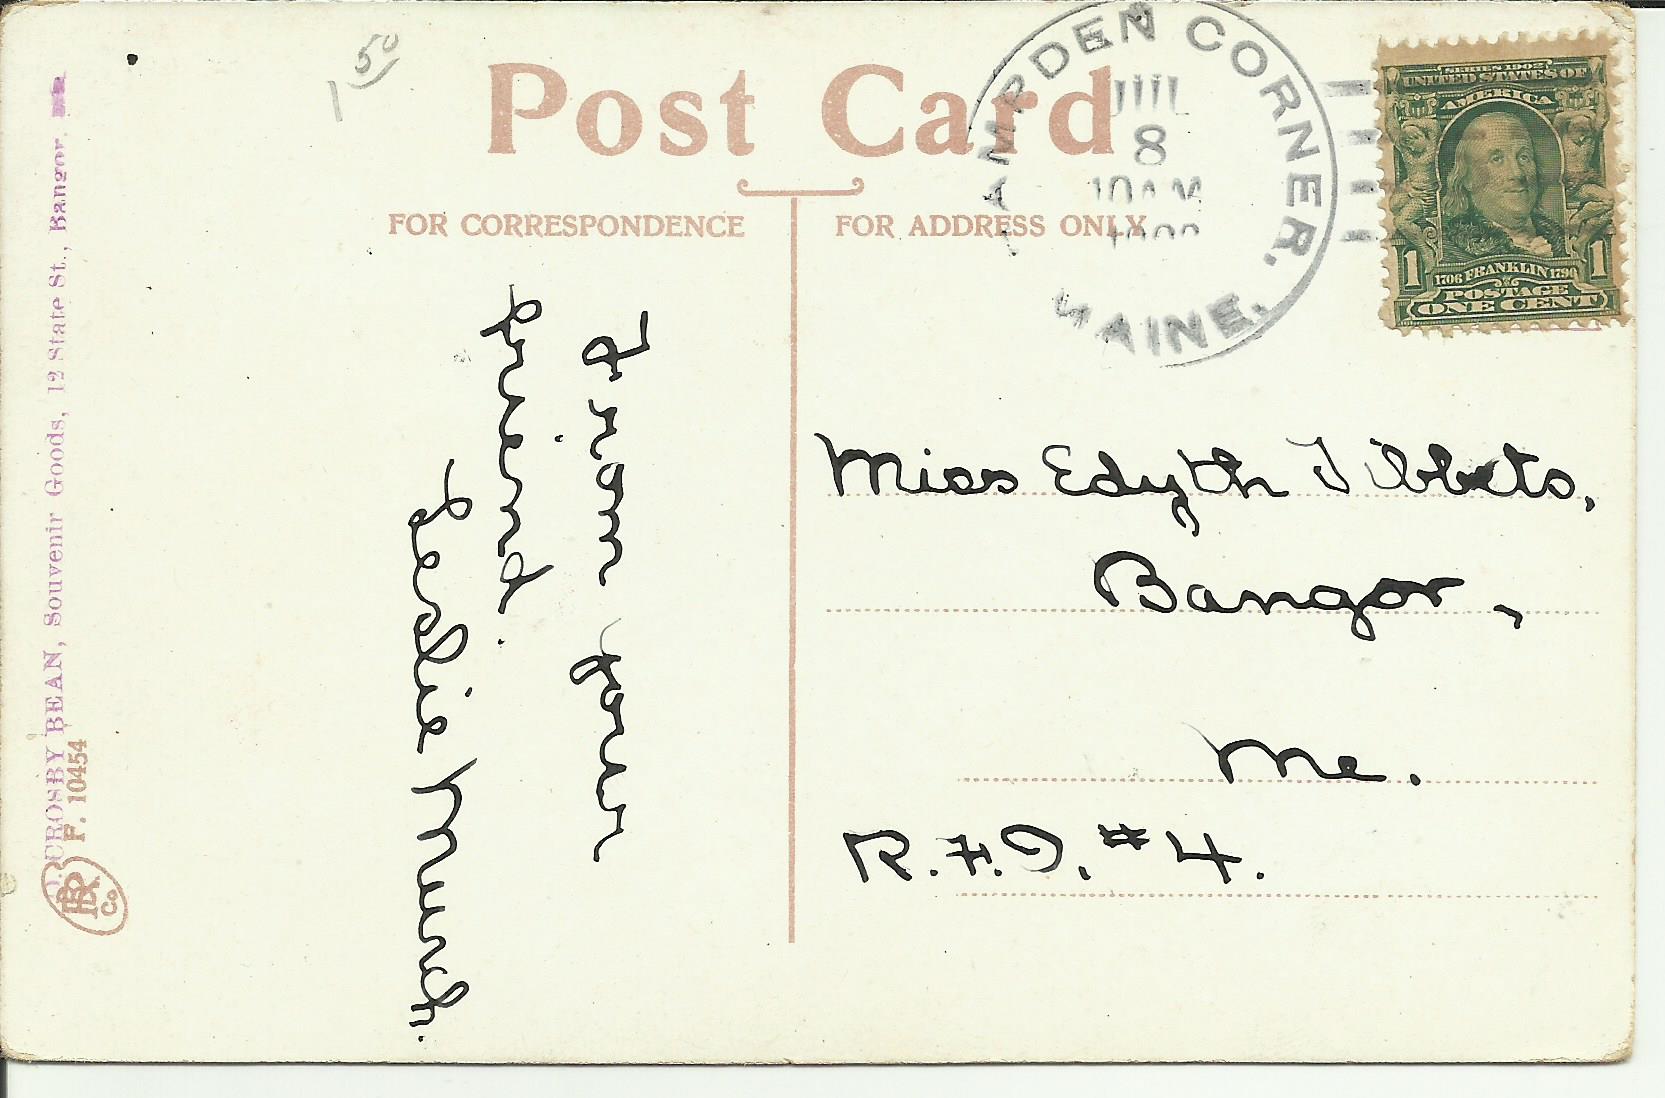 1 50
Post Card
FOR CORRESPONDENCE
FOR ADDRESS ONLY
HAMPDEN CORNER.
JUL
8
10 AM
MAINE.
SERIES 1902
UNITED STATES OF
AMERICA
1 1
1706 FRANKLIN 1790
POSTAGE
ONE CENT
From your
friend.
Leslie Murch.
Miss Edyth Tibbets,
Bangor,
Me.
R.F.D. #4.
O. CROSBY BEAN, Souvenir Goods, 12 State St., Bangor.
F. 10454
Co